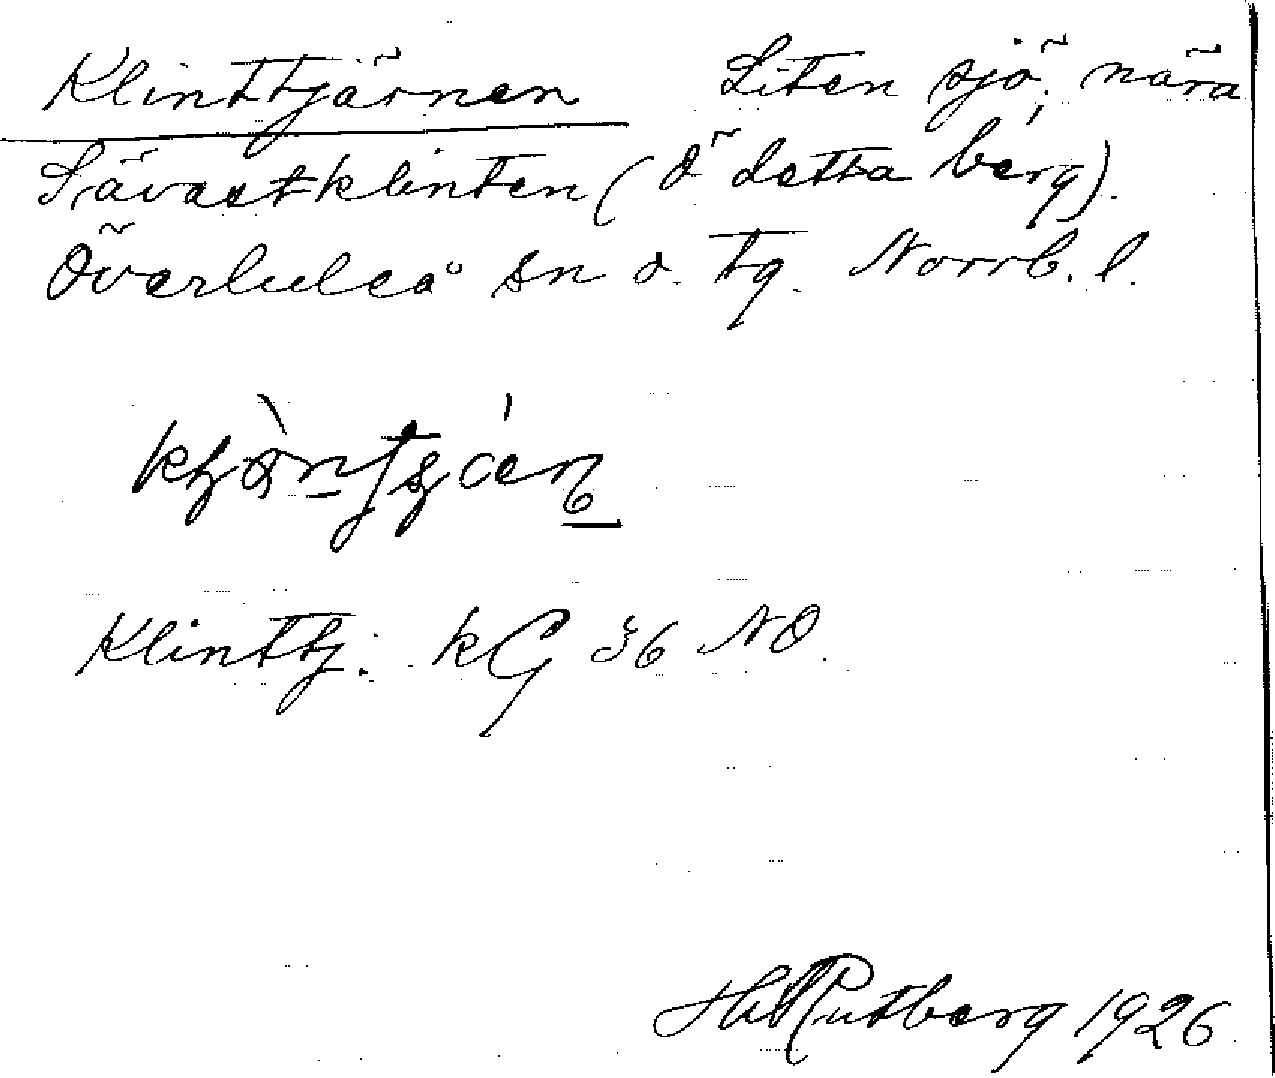 Klinttjärnen Liten sjö, nära
Sävastklinten (Ö detta berg).
Överluleå sn o. tg. Norrb. l.
Klinttj. kG 36 NO.
H Rutberg 1926.